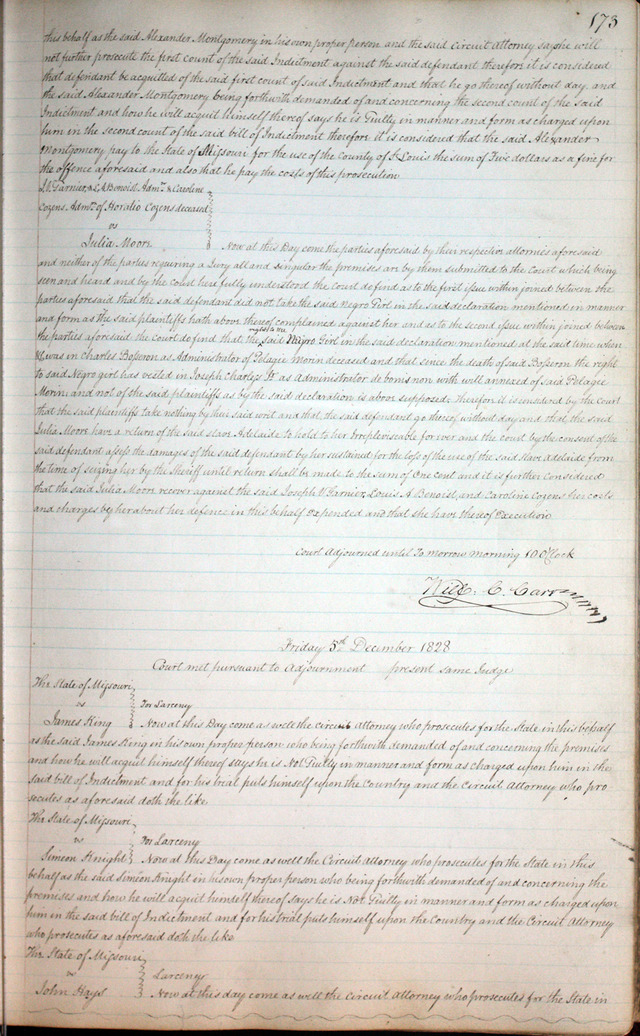 173
this behalf as the said Alexander Montgomery in his own proper person and the said Circuit attorney says he will
not further prosecute the first count of the said Indictment against the said defendant therefore it is considered
that defendant be acquitted of the said first count of said Indictment and that he go thereof without day and
the said Alexander Montgomery being forthwith demanded of and concerning the second count of the said
Indictment and how he will acquit himself thereof says he is Guilty in manner and form as charged upon
him in the second count of the said bill of Indictment therefore it is considered that the said Alexander
Montgomery pay to the State of Missouri for the use of the County of St Louis the sum of Five dollars as a fine for
the offence aforesaid and also that he pay the costs of this prosecution
J. V. Garnier & L A Benoist Admr. & Caroline
Cozens Admx. of Horatio Cozens deceased
vs
Julia Moore Now at this Day come the parties aforesaid by their respective attornies aforesaid
and neither of the parties requiring a Jury all and singular the premises are by them submitted to the Court which being
seen and heard and by the court here fully understood the court do find as to the first issue within joined between the
parties aforesaid that the said defendant did not take the said Negro Girl in the said declaration mentioned in manner
and form as the said plaintiffs hath above thereof complained against her and as to the second issue within joined between
the parties aforesaid the Court do find that the right to the said Negro Girl in the said declaration mentioned at the said time when
&c was in Charles Bosseron as Administrator of Pelagie Morin deceased and that since the death of said Bosseron the right
to said Negro girl has vested in Joseph Charles Jr. as administrator de bonis non with will annexed of said Pelagie
Morin and not of the said plaintiffs as by the said declaration is above supposed; therefore it is considered by the court
that the said plaintiffs take nothing by their said writ and that the said defendant go thereof without day and that the said
Julia Moore have a return of the said slave Adelaide to hold to her Irrepleviseable forever and the court by the consent of the
said defendant assess the damages of the said defendant by her sustained for the loss of the use of the said slave Adelaide from
the time of seizing her by the Sheriff until return shall be made to the sum of One cent and it is further considered
that the said Julia Moore recover against the said Joseph V Garnier, Louis A Benoist, and Caroline Cozens her costs
and charges by her about her defence in this behalf expended and that she have thereof Execution
Court Adjourned until To morrow morning 10 O'Clock
Will: C. Carr
Friday 5th December 1828
Court met pursuant to Adjournment present same Judge
The State of Missouri
vs For Larceny
James King Now at this Day come as well the Circuit Attorney who prosecutes for the State in this behalf
as the said James King in his own proper person who being forthwith demanded of and concerning the premises
and how he will acquit himself thereof says he is Not Guilty in manner and form as charged upon him in the
said bill of Indictment and for his trial puts himself upon the Country and the Circuit Attorney who pro
secutes as aforesaid doth the like
The State of Missouri
vs For Larceny
Simeon Knight Now at this Day come as well the Circuit Attorney who prosecutes for the State in this
behalf as the said Simeon Knight in his own proper person who being forthwith demanded of and concerning the
premises and how he will acquit himself thereof Says he is Not Guilty in manner and form as charged upon
him in the said bill of Indictment and for his trial puts himself upon the Country and the Circuit Attorney
who prosecutes as aforesaid doth the like
The State of Missouri
vs Larceny
John Hays Now at this day come as well the Circuit Attorney who prosecutes for the State in